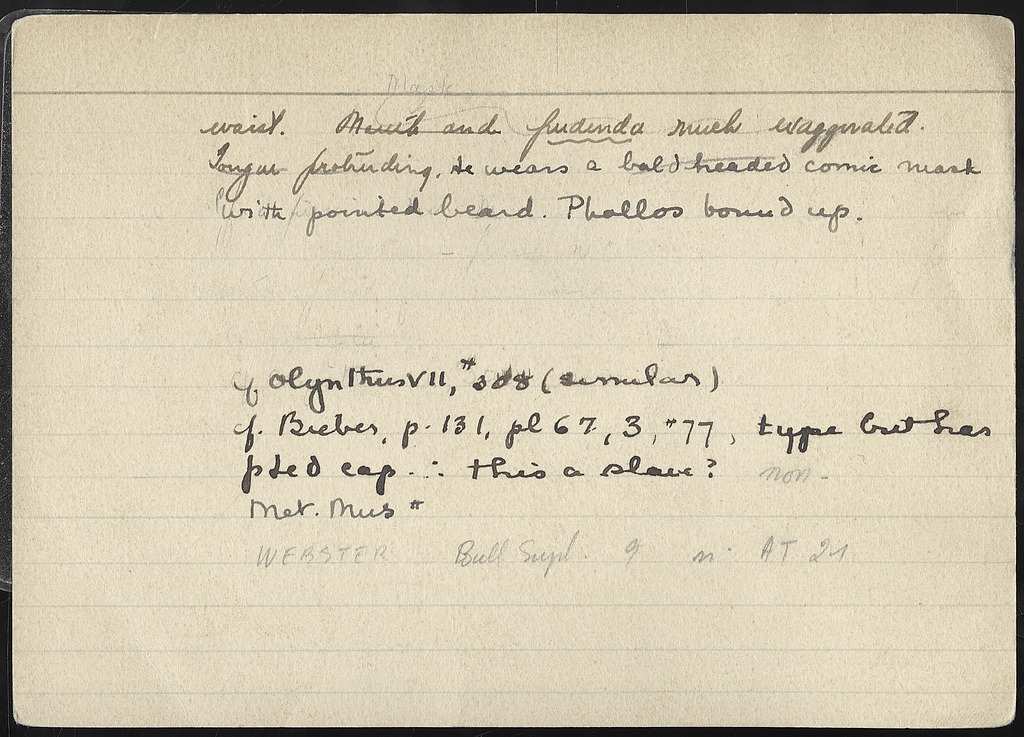 Mask
waist. Mouth and pudenda much exaggerated.
Tongue protruding. He wears a bald headed comic mask
with pointed beard. Phallos bound up.
cf Olynthus VII, # (similar)
cf. Bieber, p. 131, pl 67, 3, #77, type but has
pted cap ∴ this a slave? non -
Met. Mus #
WEBSTER Bull Supl. 9 n. AT 21